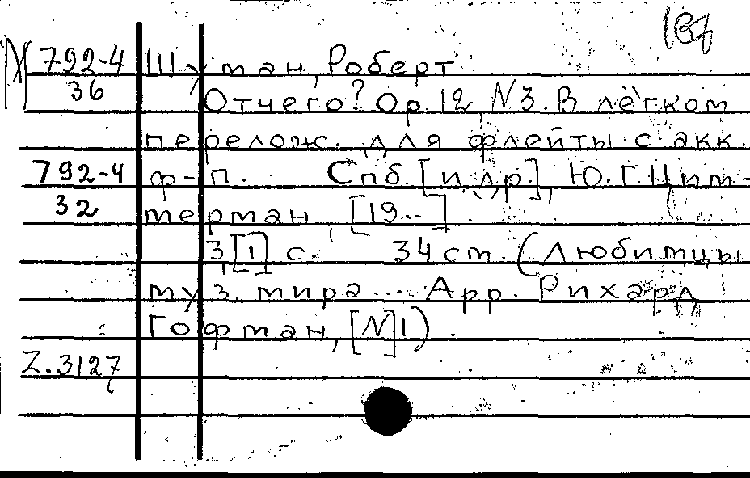 792-4 Шуман, Роберт
36 Отчего? Op. 12, N3. В лёгком
перелож. для флейты с акк.
792-4 ф-п. Спб [и др.], Ю. Г. Цим-
32 мерман [19..]
3, [1] с. 34 см. (Любимцы
муз. мира... Арр. Рихард
Гофман, [N] 1).
Z.3127